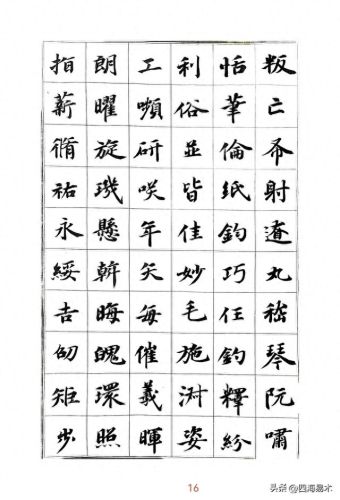 叛亡布射遼丸嵇琴阮嘯
恬筆倫紙鈞巧任釣釋紛
利俗並皆佳妙毛施淑姿
工嚬研咲年矢每催羲暉
朗曜旋璣懸斡晦魄環照
指薪脩祐永綏吉劭矩步
16
头条@四海易木